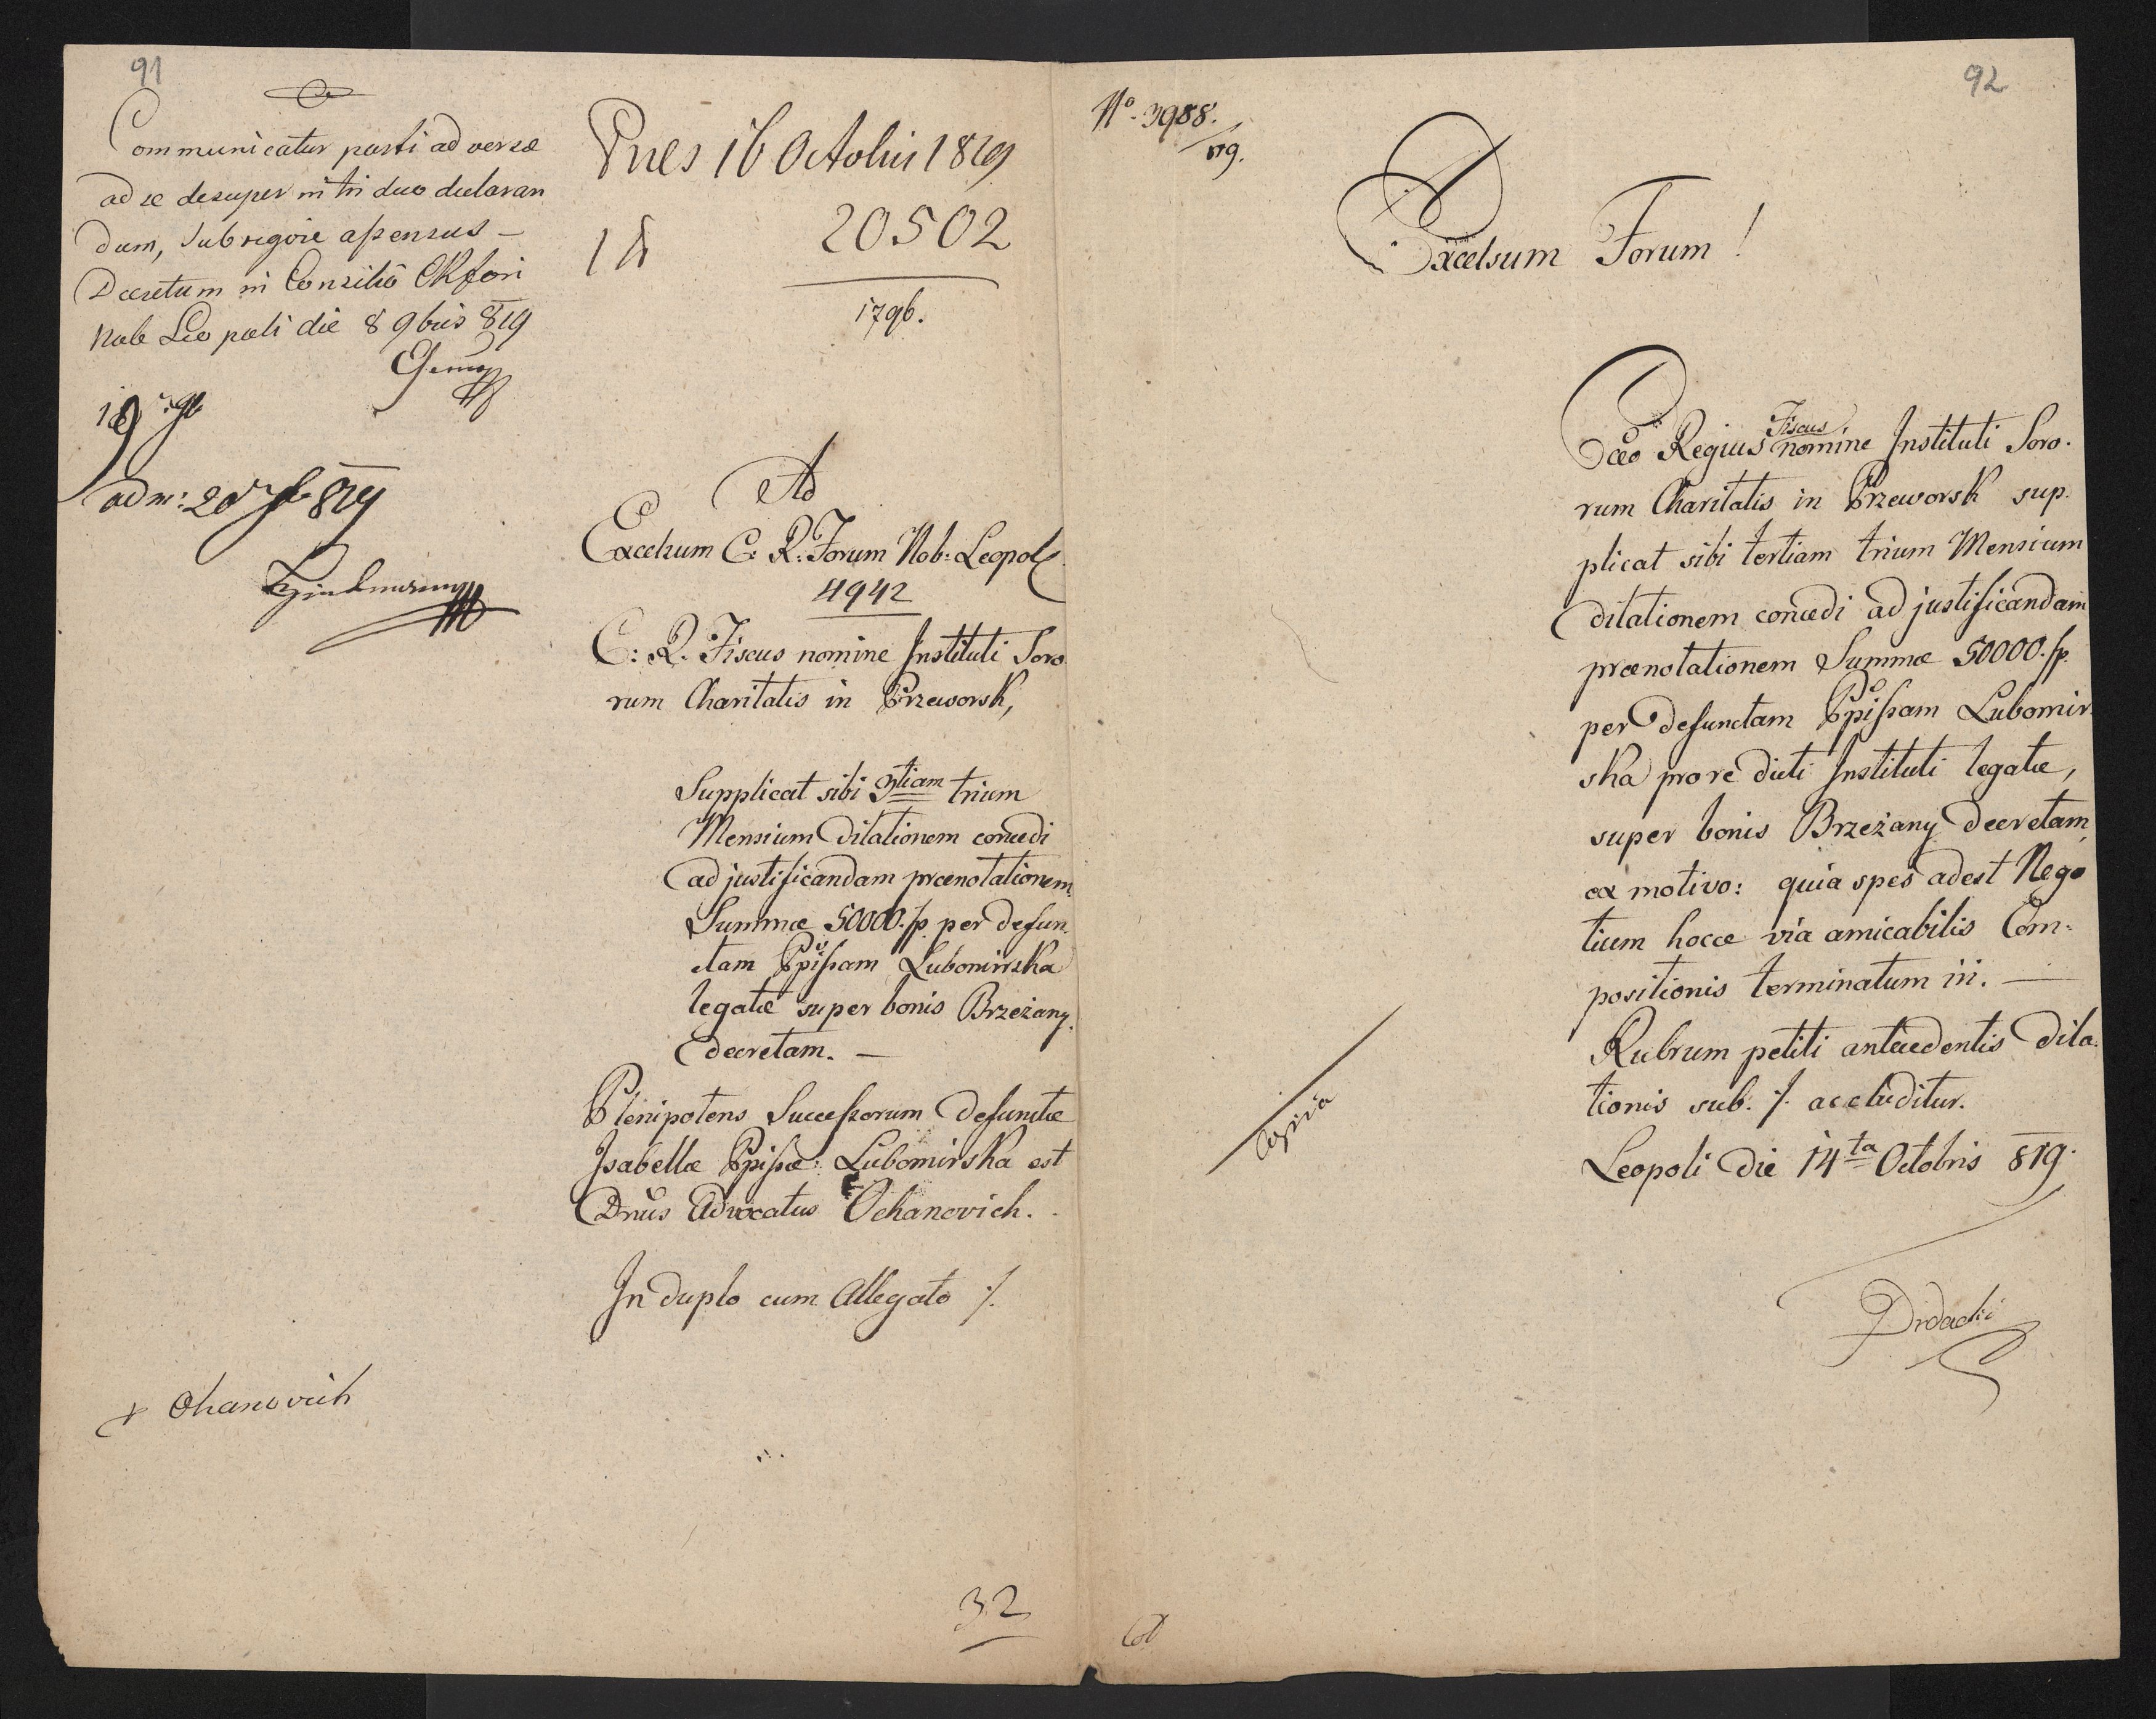 91
Communicatur parti adversæ
ad se desuper in triduo declaran
dum, sub rigore assensus –
Decretum in Consilio CRfori
Nob Leopoli die 8 9bris 819
adm: 20 819
Præs 16 Octobris 1819
20502
1796.
Ad
Excelsum C. R. Forum Nob: Leopol
4942
C: R. Fiscus nomine Instituti Soro
rum Charitatis in Przeworsk,
Supplicat sibi 3tiam trium
Mensium Dilationem concedi
ad justificandam prænotationem
Summæ 50000. fp. per defun
ctam Ppissam Lubomirska
legatæ super bonis Brzeżany
decretam. —
Plenipotens Successorum defunctæ
Isabellæ Ppissæ: Lubomirska est
Dnus Advocatus Ochanovich.
In duplo cum Allegato ·/.
Ohanovich
32
92
No. 3988.
819.
Excelsum Forum!
Cæo Regius Fiscus nomine Instituti Soro.
rum Charitatis in Przeworsk sup.
plicat sibi tertiam trium Mensium
dilationem concedi ad justificandam
prænotationem Summæ 50000. fp.
per defunctam Ppissam Lubomir.
ska pro re dicti Instituti legatæ,
super bonis Brzeżany decretam,
ex motivo: quia spes adest Nego
tium hocce via amicabilis Com-
positionis terminatum iri. —
Rubrum petiti antecedentis dila.
tionis sub. ·/. accluditur.
Leopoli die 14ta Octobris 819.
Copia